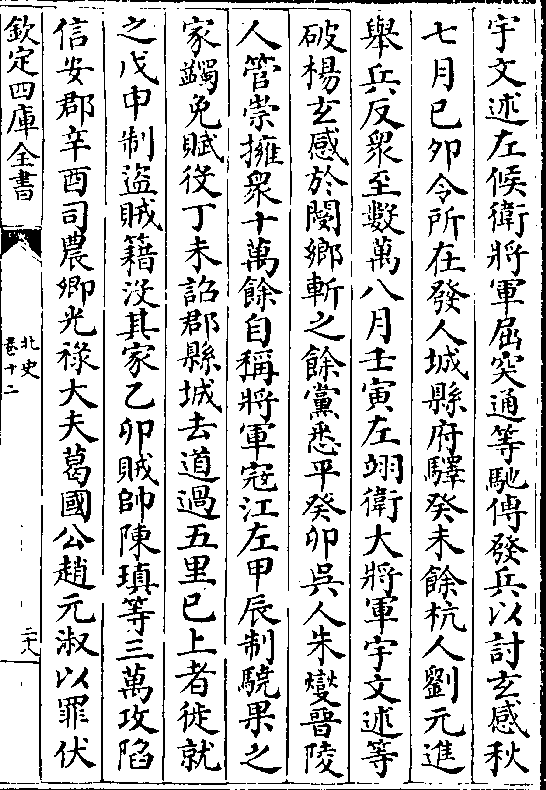 宇文述左候衛將軍屈突通等馳傳發兵以討玄感秋
七月己夘令所在發人城縣府驛癸未餘杭人劉元進
舉兵反衆至數萬八月壬寅左翊衛大將軍宇文述等
破楊玄感於閿鄉斬之餘黨悉平癸卯吳人朱燮晉陵
人管崇擁衆十萬餘自稱將軍寇江左甲辰制驍果之
家蠲免賦役丁未詔郡縣城去道過五里已上者徙就
之戊申制盜賊籍没其家乙卯賊帥陳瑱等三萬攻陷
信安郡辛酉司農卿光祿大夫葛國公趙元淑以罪伏
欽定四庫全書
北史
卷十二
二十八